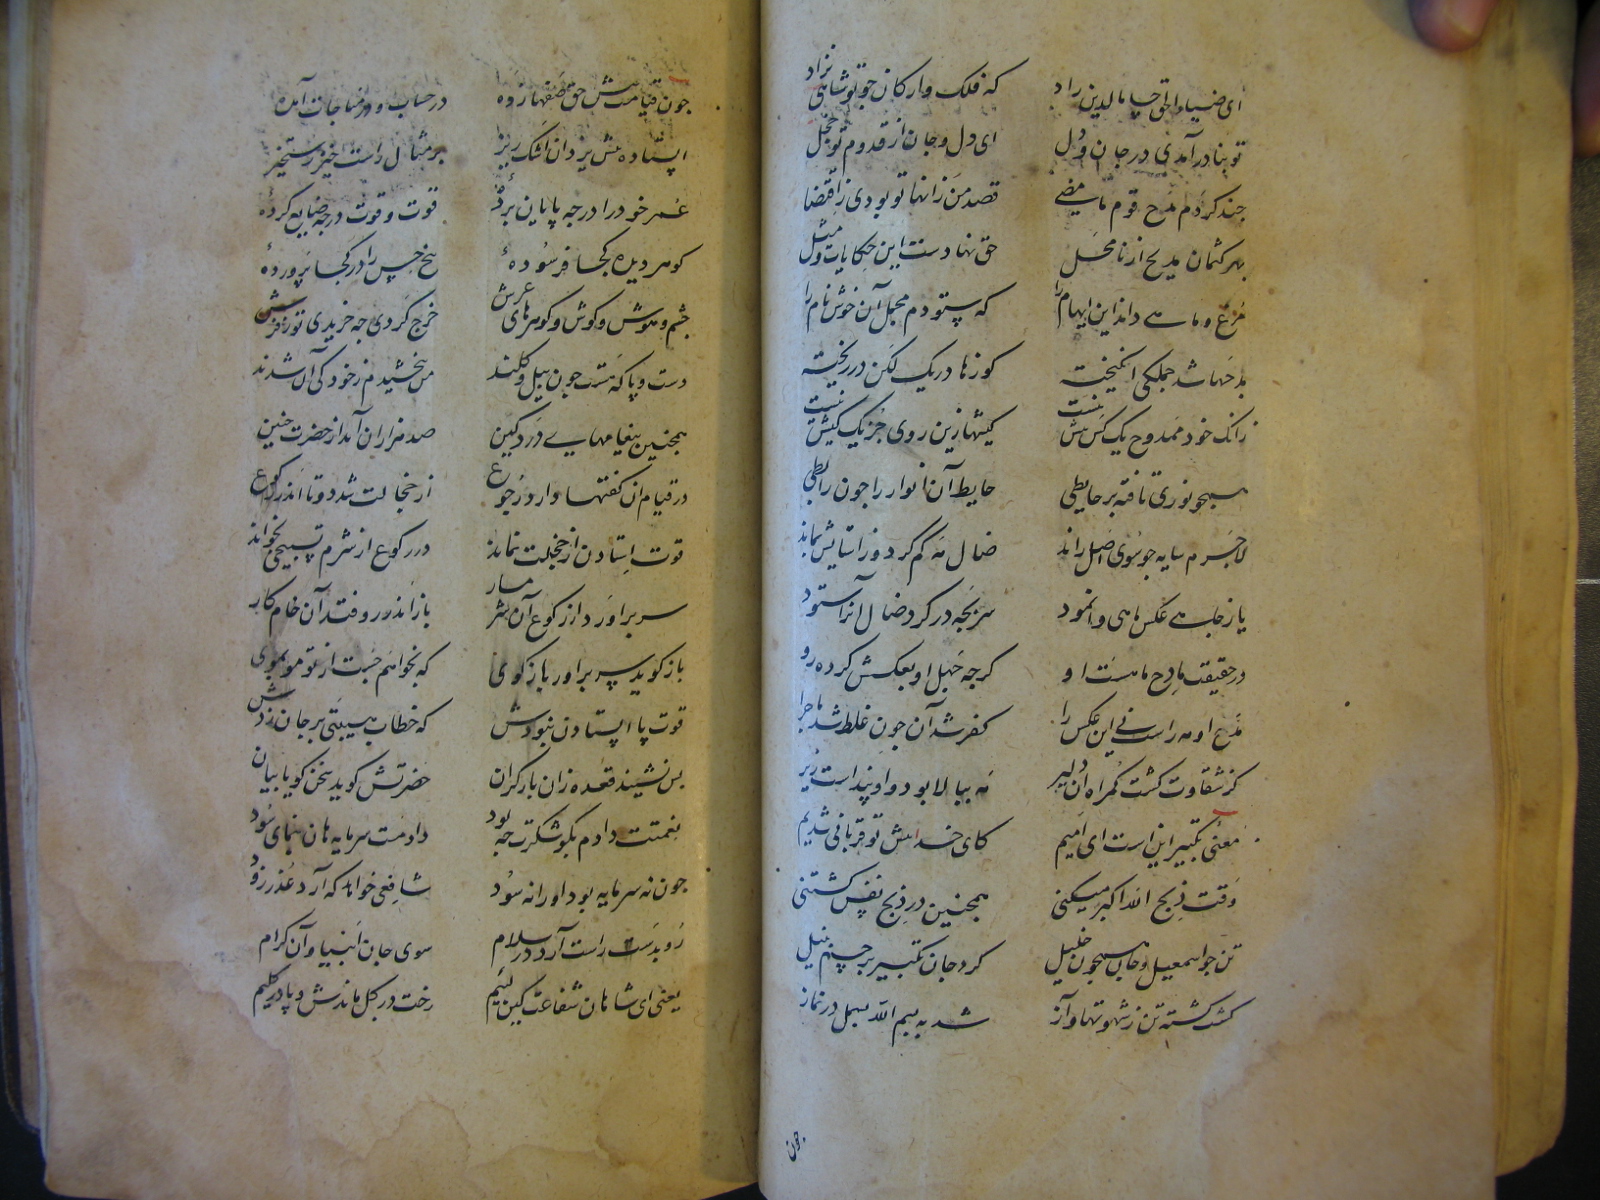 ای ضیاء الحق حسام الدین راد که فلک وارکان چو تو شاهی نزاد
تو بنادر آمدی در جان و دل ای دل و جان از قدوم تو خجل
چند کردم مدح قوم ما مضی قصد من زانها تو بودی ز اقتضا
بهر کتمان مدیح از نامحل حق نهادست این حکایات و مثل
که ستودم مجمل آن خوش نام را
مدحها شد جملگی آمیخته کوزها در یک لگن در ریخته
زانک خود ممدوح یک کس بیش نیست کیشها زین روی جز یک کیش نیست
همچو نوری تافته بر حایطی حایط آن انوار را چون رابطی
لاجرم سایه چو سوی اصل راند ضال مه گم کرد و ز استایش بماند
یا ز چاهی عکس ماهی وا نمود سر بچه در کرد ضال آنرا ستود
در حقیقت مادح ماهست او گرچه جهل او بعکسش کرده رو
مدح او مه راست نی این عکس را کفر شد آن چون غلط شد ماجرا
کز شقاوت گشت گمراه آن دلیر مه ببالا بود و او پنداشت زیر
معنی تکبیر اینست ای امیم کای خدا پیش تو قربانی شدیم
وقت ذبح الله اکبر میکنی همچنین در ذبح نفس کشتنی
تن چو اسمعیل و جان همچون خلیل کرد جان تکبیر بر جسم نبیل
گشت کشته تن ز شهوتها و آز شد به بسم الله بسمل در نماز
چون
چون قیامت پیش حق صفها زده در حساب و در مناجات آمده
ایستاده پیش یزدان اشک ریز بر مثال راست خیز رستخیز
عمر خود را در چه پایان برده قوت و قوت در چه ضایع کرده
گوهر دیده کجا فرسوده پنج حس را در کجا پرورده
چشم و هوش و گوش و گوهرهای عرش خرج کردی چه خریدی تو ز فرش
دست و پا که هست چون بیل و کلند من بخشیدم ز خود کی آن شدند
همچنین پیغامهای درد کین صد هزاران آمد از حضرت چنین
در قیام آن گفتها دارد رجوع از خجالت شد دوتا اندر رکوع
قوت استادن از خجلت نماند در رکوع از شرم تسبیحی بخواند
سر برآورد از رکوع آن شرمسار باز اندر رو فتد آن خام کار
باز گوید سر برآور باز گوی که بخواهم جست از تو مو بموی
قوت پا ایستادن نبودش که خطاب هیبتی بر جان زدش
پس نشیند قعده زان بار گران حضرتش گوید سخن گو با بیان
نعمتت دادم بگو شکرت چه بود دادمت سرمایه هان بنمای سود
چون نه سرمایه بود او را نه سود شافعی خواهد که آرد عذر زود
رو بدست راست آرد در سلام سوی جان انبیا و آن کرام
یعنی ای شاهان شفاعت کین لئیم رخت در گل ماندش و پا در گلیم